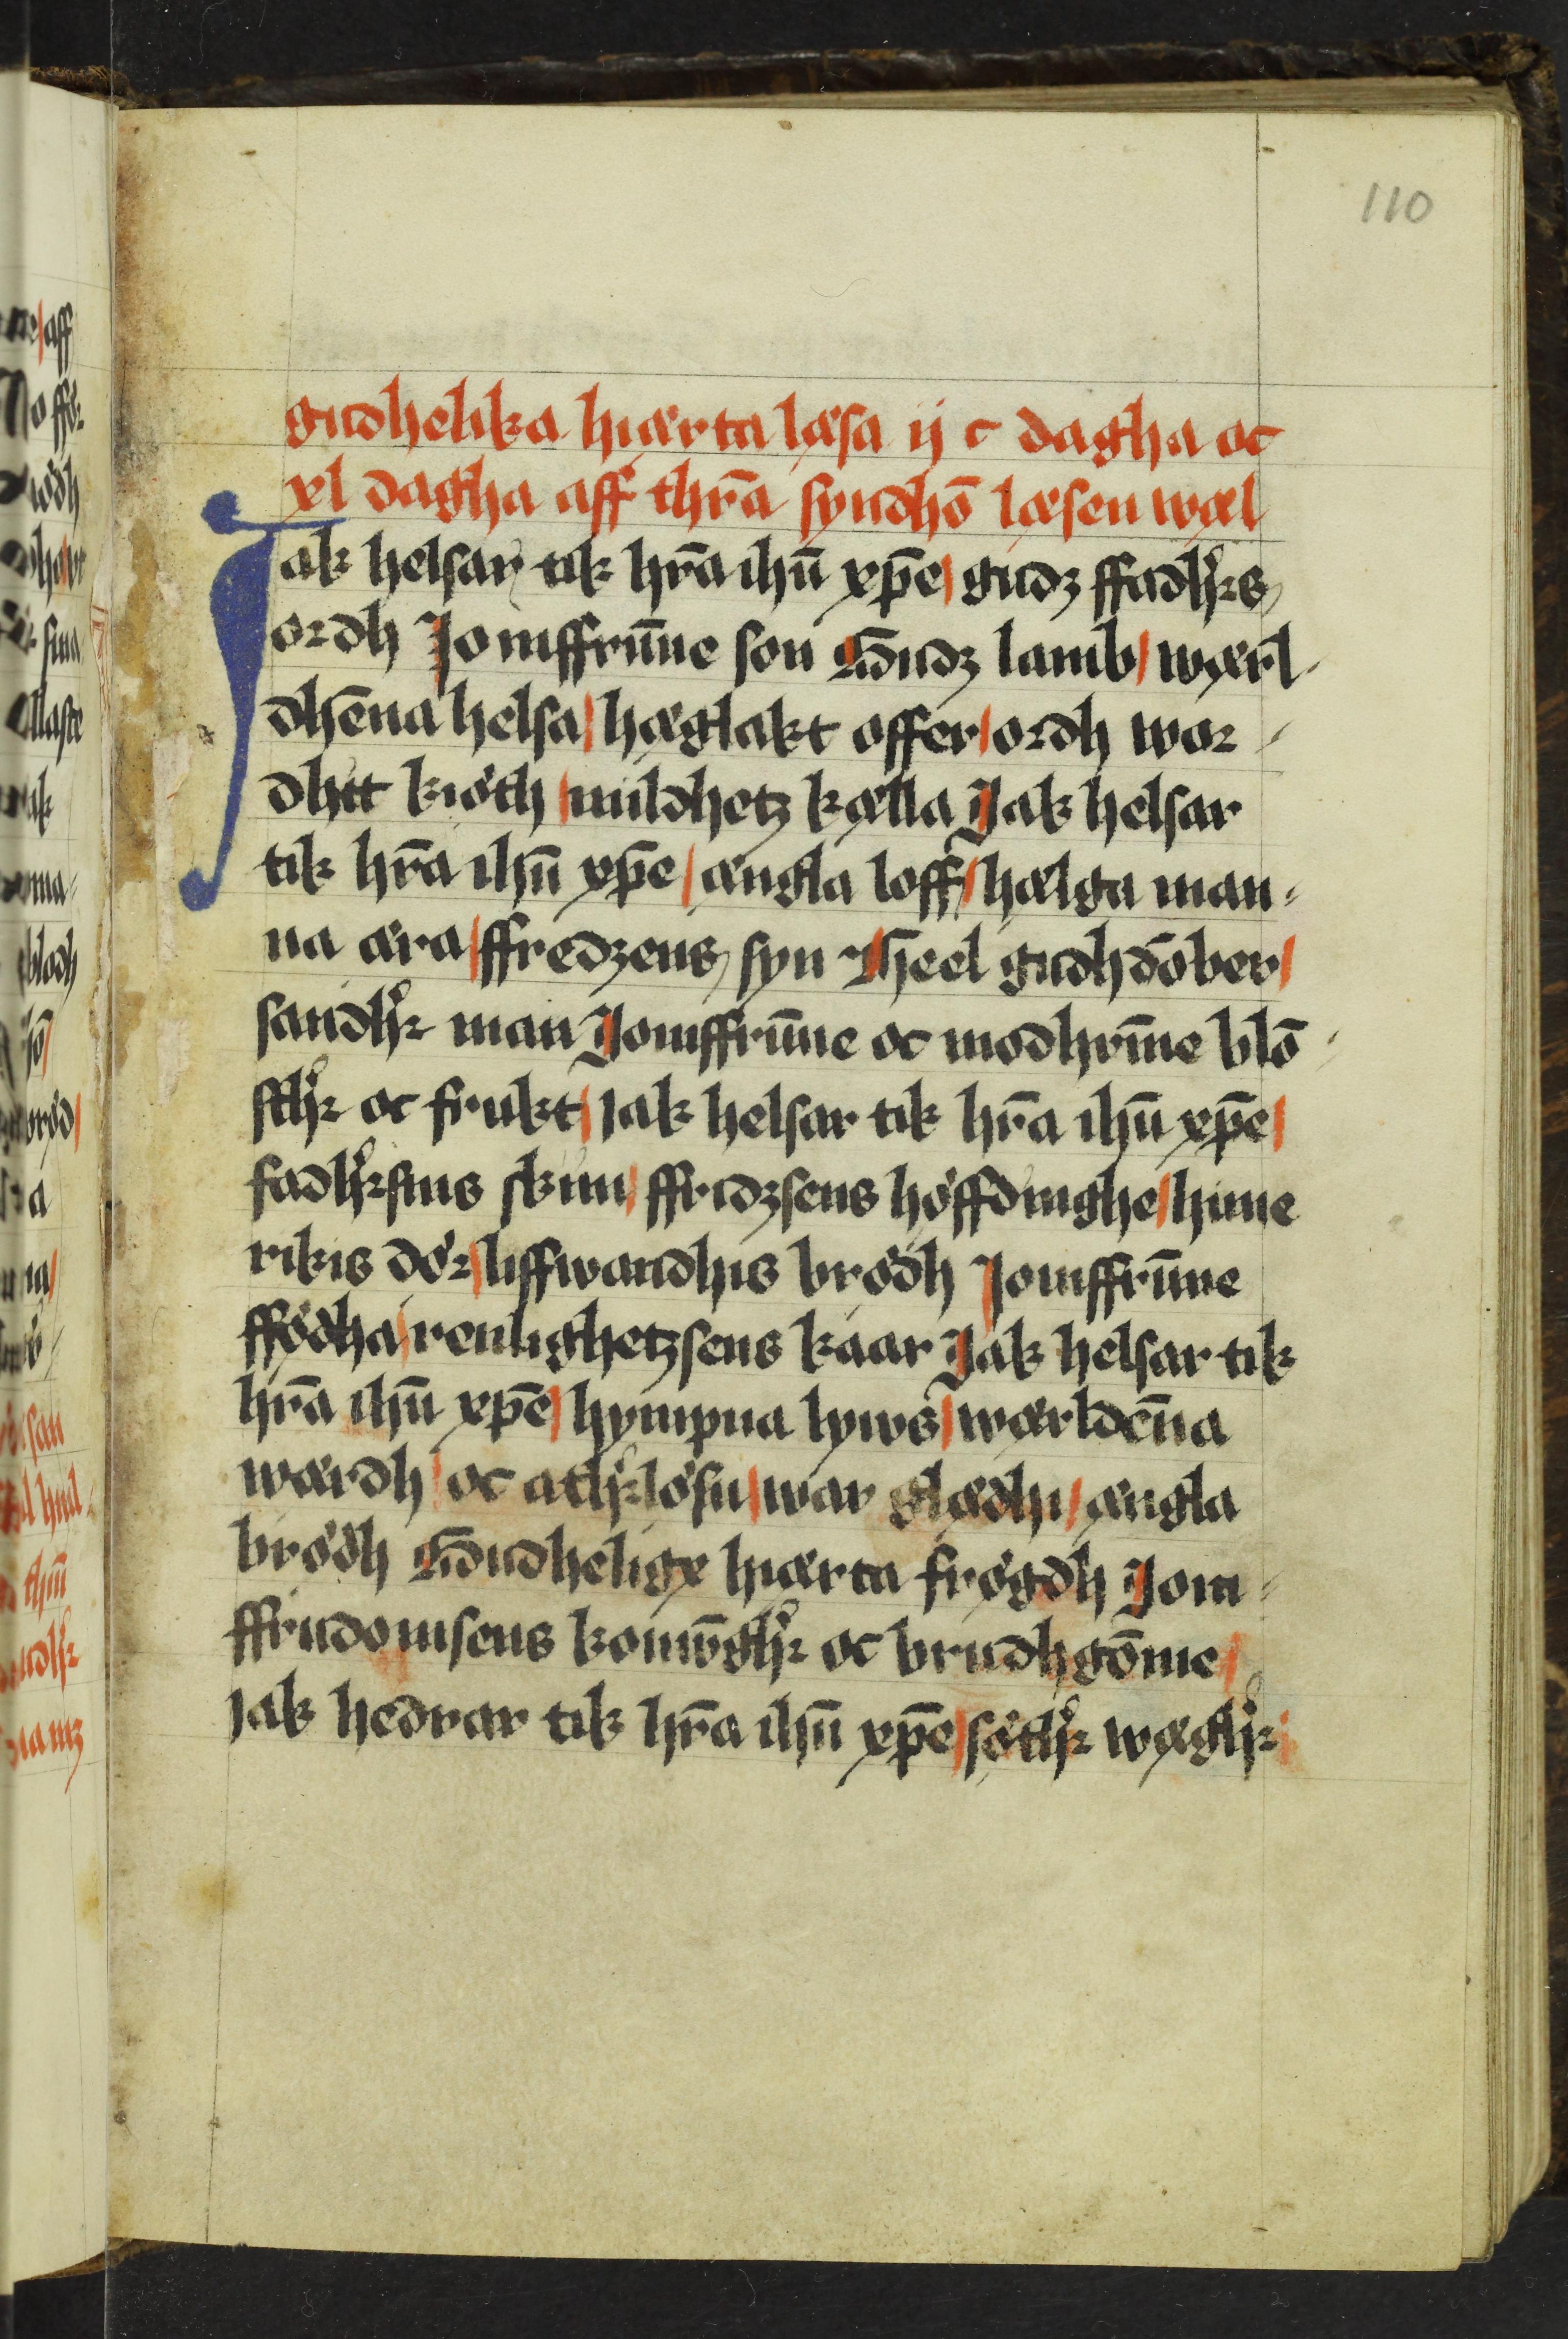 110
gudhelika hiærta læsa ij c dagha oc
xl dagha aff thr̄a syndhō læsen wæl
Jak helsar tik hr̄a ihū xp̄e / gudz ffadhr̛s
ordh Jomffrūne son Gudz lamb / wærl-
dhēna helsa / hæglakt offer / ordh wor-
dhit kiøth / mildhetz kælla Jak helsar
tik hr̄a ihū xp̄e / ængla loff / hælga man-
na æra / ffredzens syn Heel gudhdōber /
sandhr̛ man Jomffrūne oc modhrīne blō-
sthr̛ oc frukt / Jak helsar tik hr̄a ihū xp̄e /
fadhr̛sins skiin / ffridzsens høffdinghe / hime
rikis dør / liffwandhis brødh Jomffrūne
ffødha / renlighetzsens kaar Jak helsar tik
hr̄a ihū xp̄e / hympna lyws / wærldēna
wærdh / oc athr̛løsn / war glædhi / ængla
brødh Gudheligx hiærta frøgdh Jom-
ffrudomsens konūghr̛ oc brudhgōme /
Jak hedrar tik hr̄a ihū xp̄e / søthr̛ wæghr̛ /